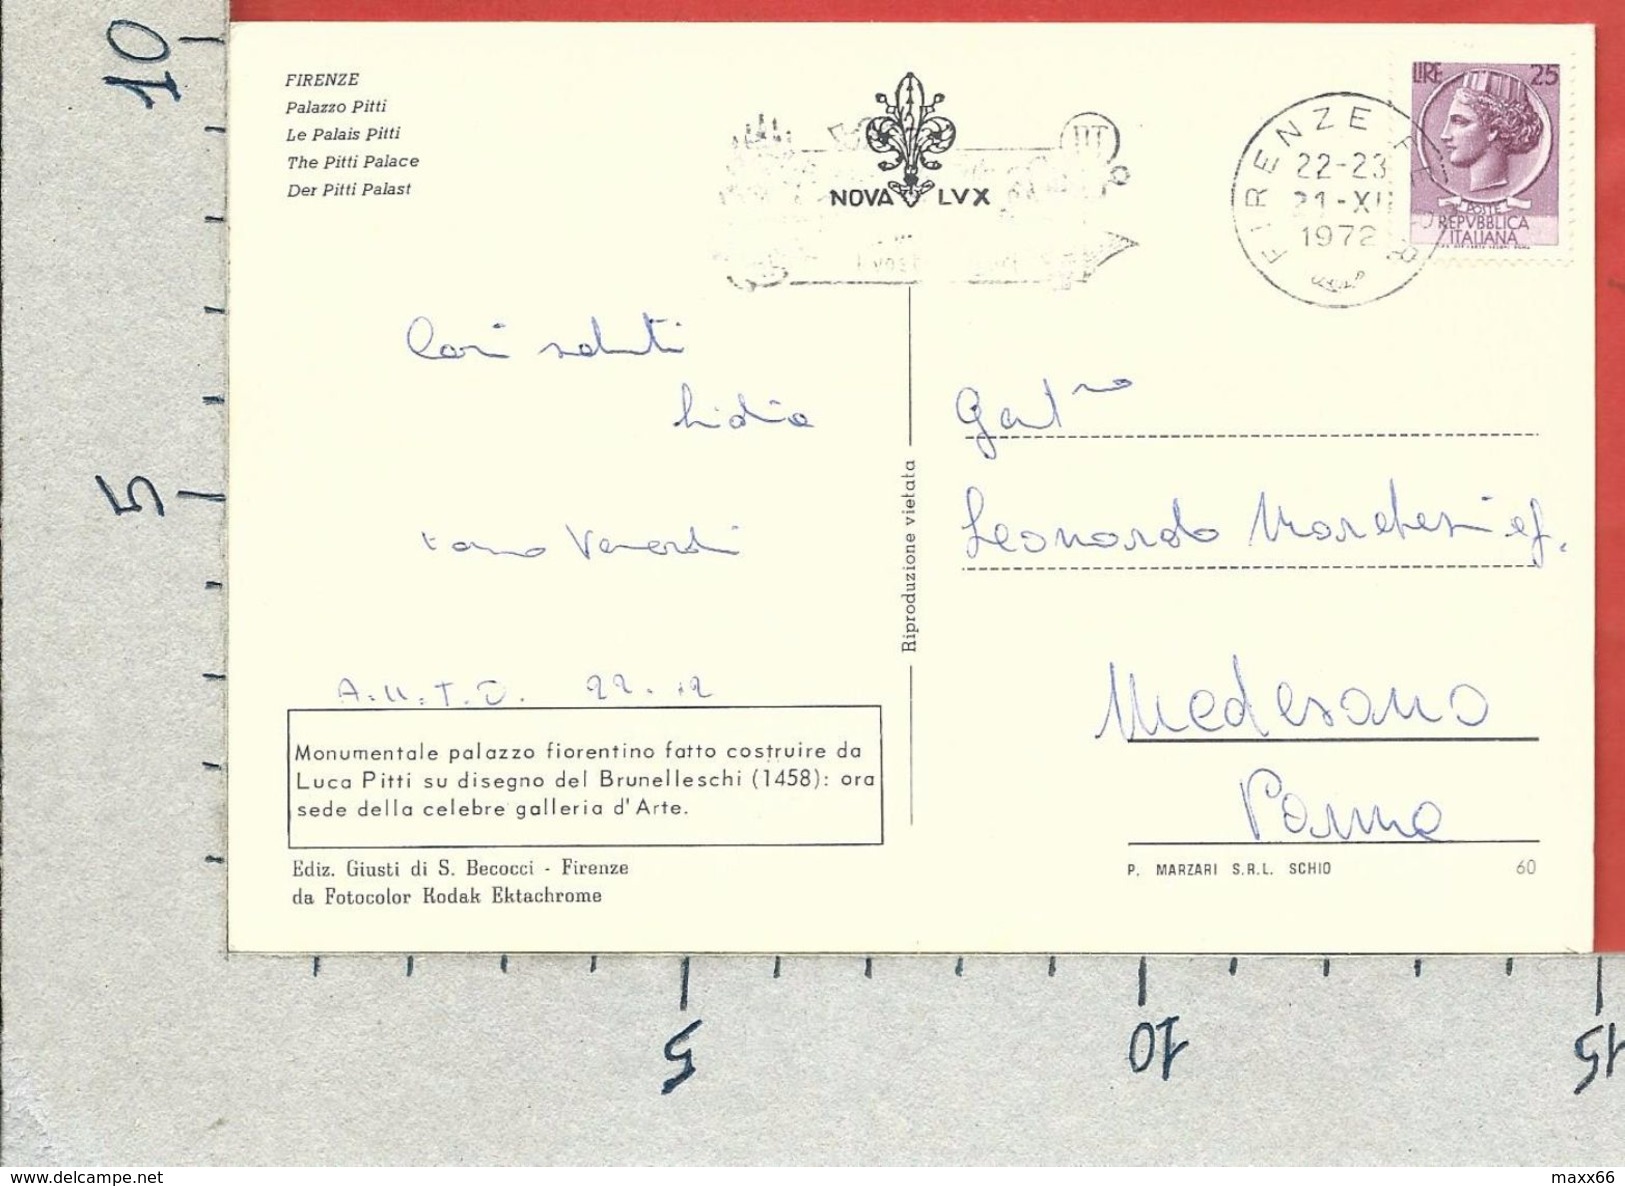 FIRENZE
Palazzo Pitti
Le Palais Pitti
The Pitti Palace
Der Pitti Palast
NOVA LVX
FIRENZE
22-23
21-XII
1972
LIRE 25
POSTE
REPVBBLICA
ITALIANA
Cari saluti
Lidia
torno Venerdì
A.U.T.O. 22.12
Riproduzione vietata
Leonardo Marchesi e f.
Medesano
Parma
Monumentale palazzo fiorentino fatto costruire da
Luca Pitti su disegno del Brunelleschi (1458): ora
sede della celebre galleria d'Arte.
Ediz. Giusti di S. Becocci - Firenze
da Fotocolor Kodak Ektachrome
P. MARZARI S.R.L. SCHIO 60
10
5
5
10
15
delcampe.net
maxx66